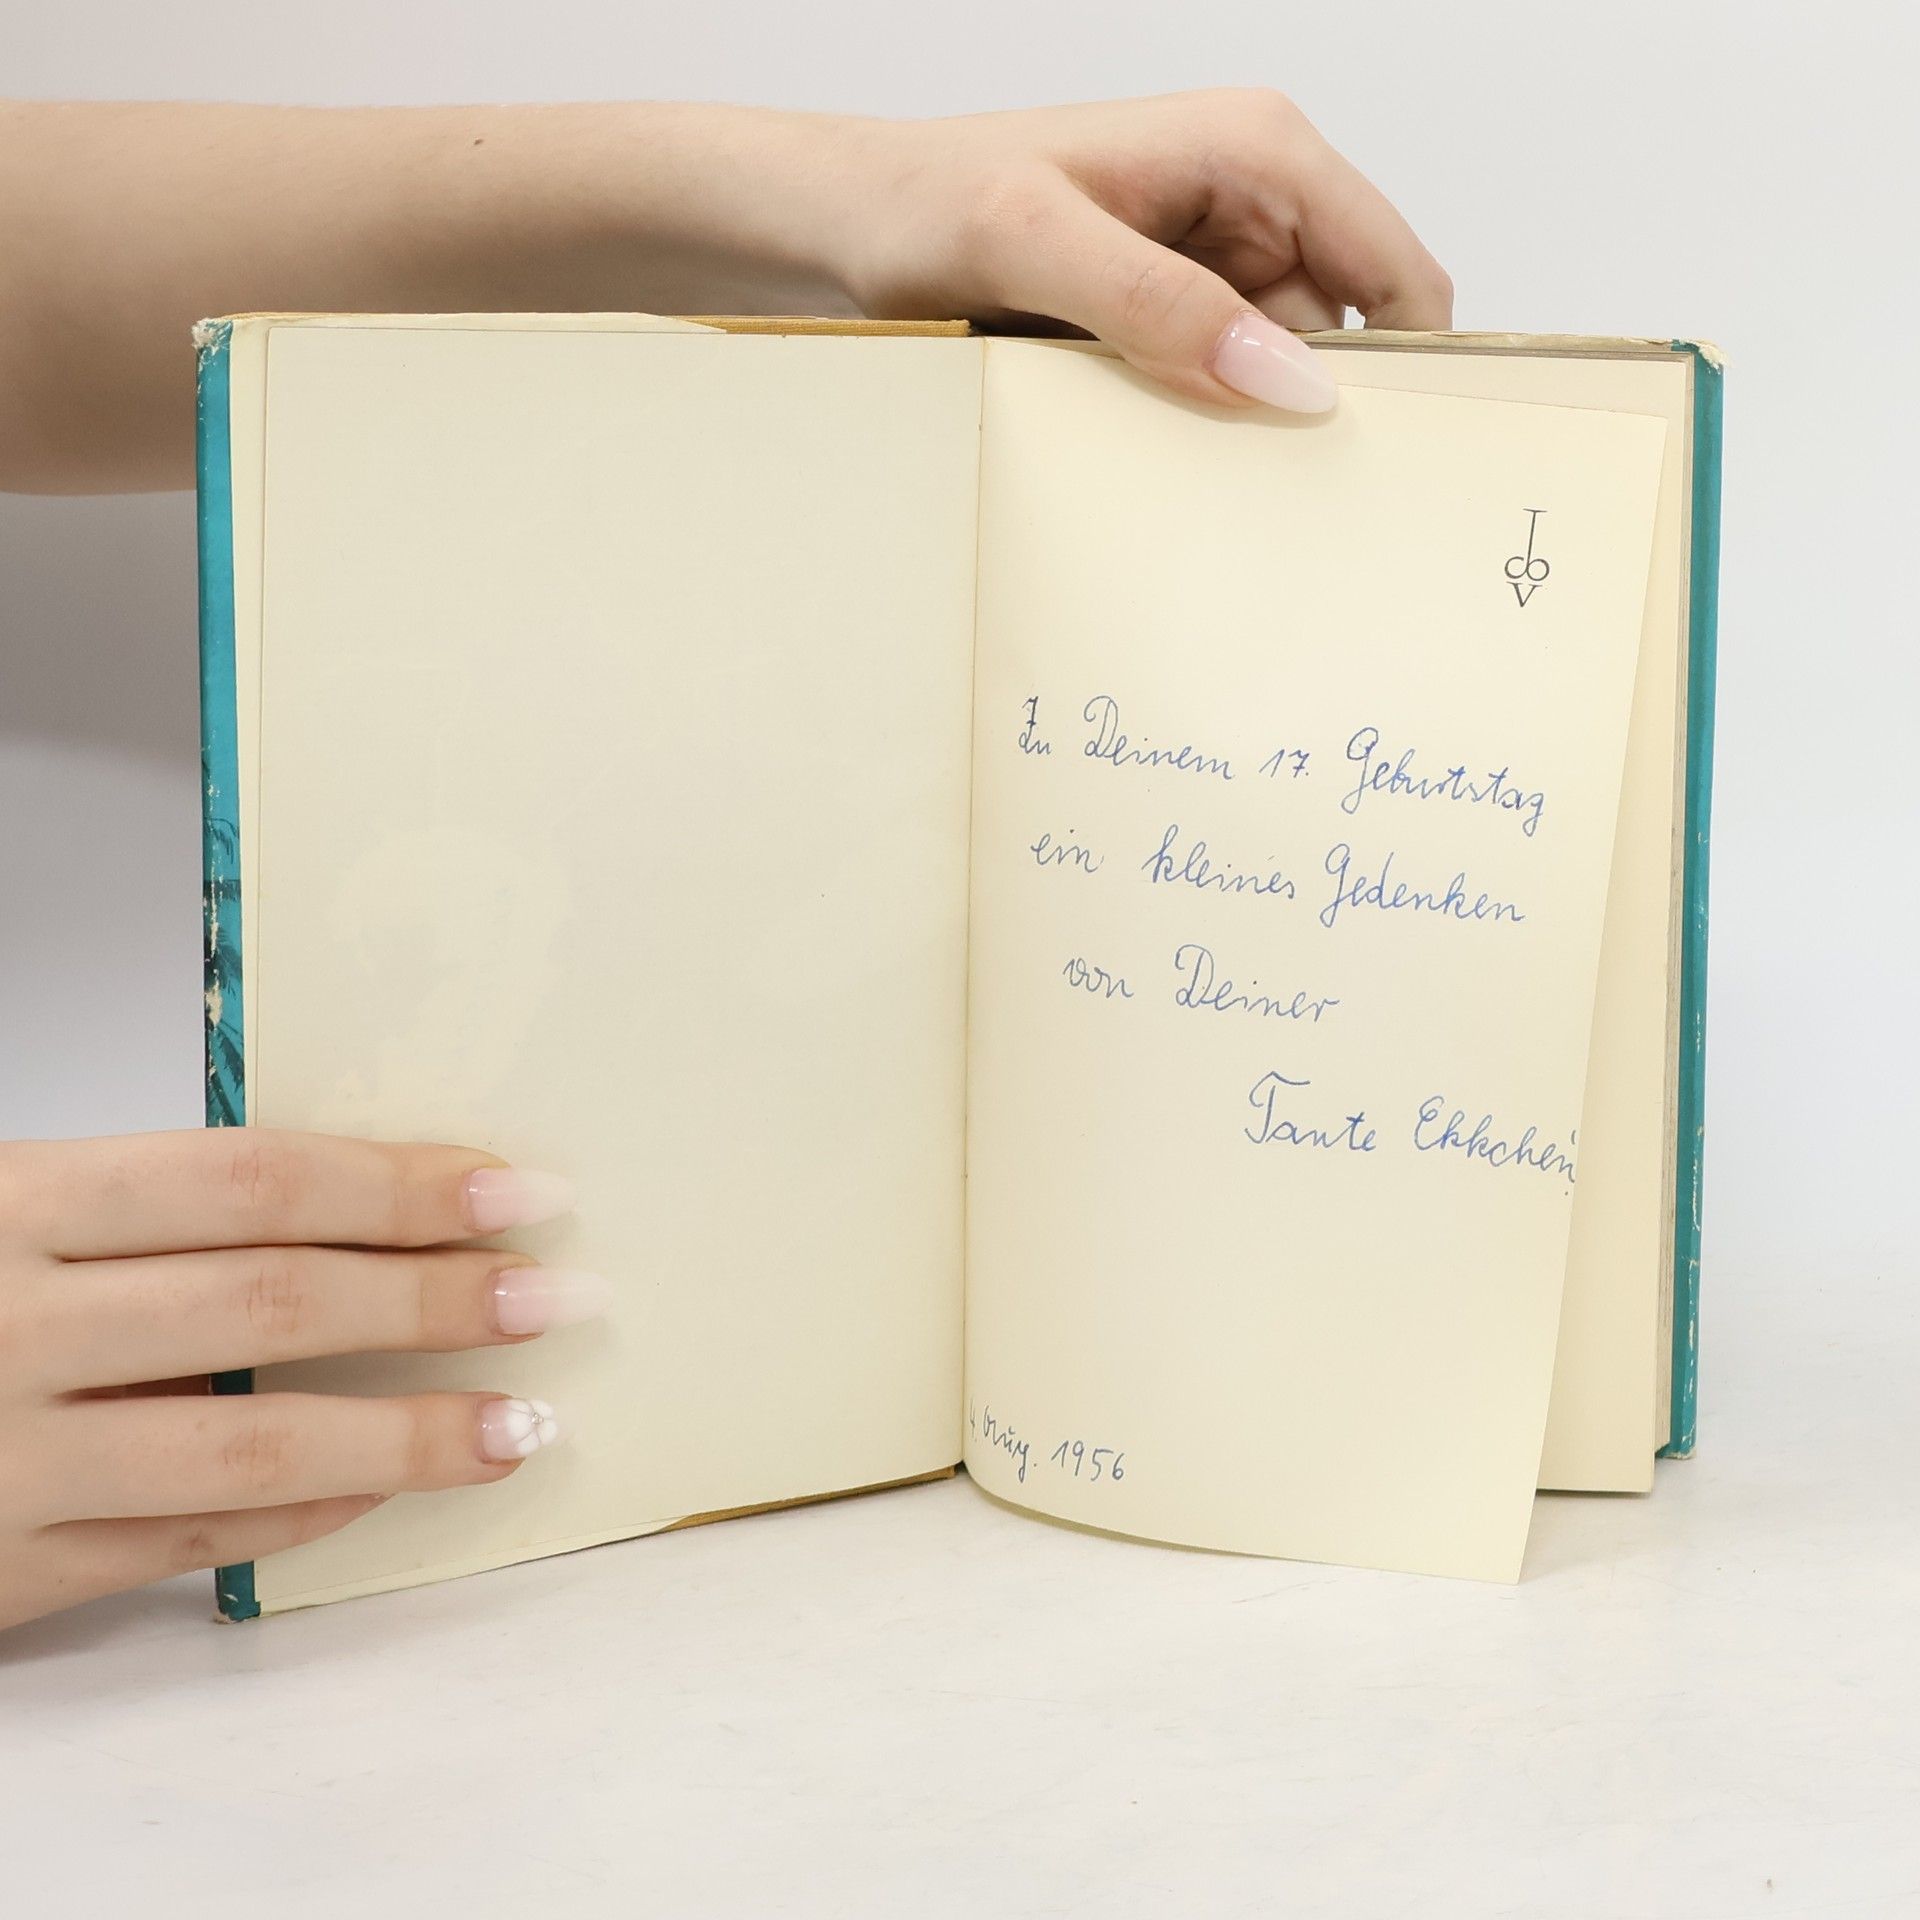 Zu Deinem 17. Geburtstag
ein kleines Gedenken
von Deiner
Tante Ekkchen.
4. Aug. 1956